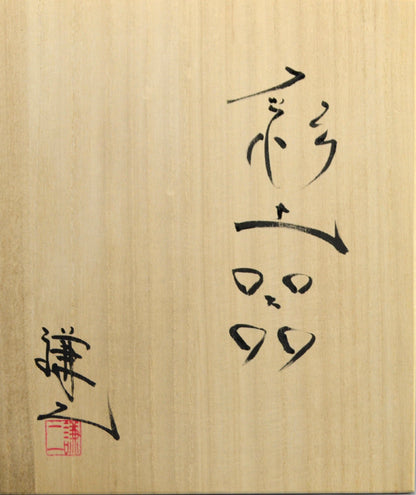 彩土器
謙